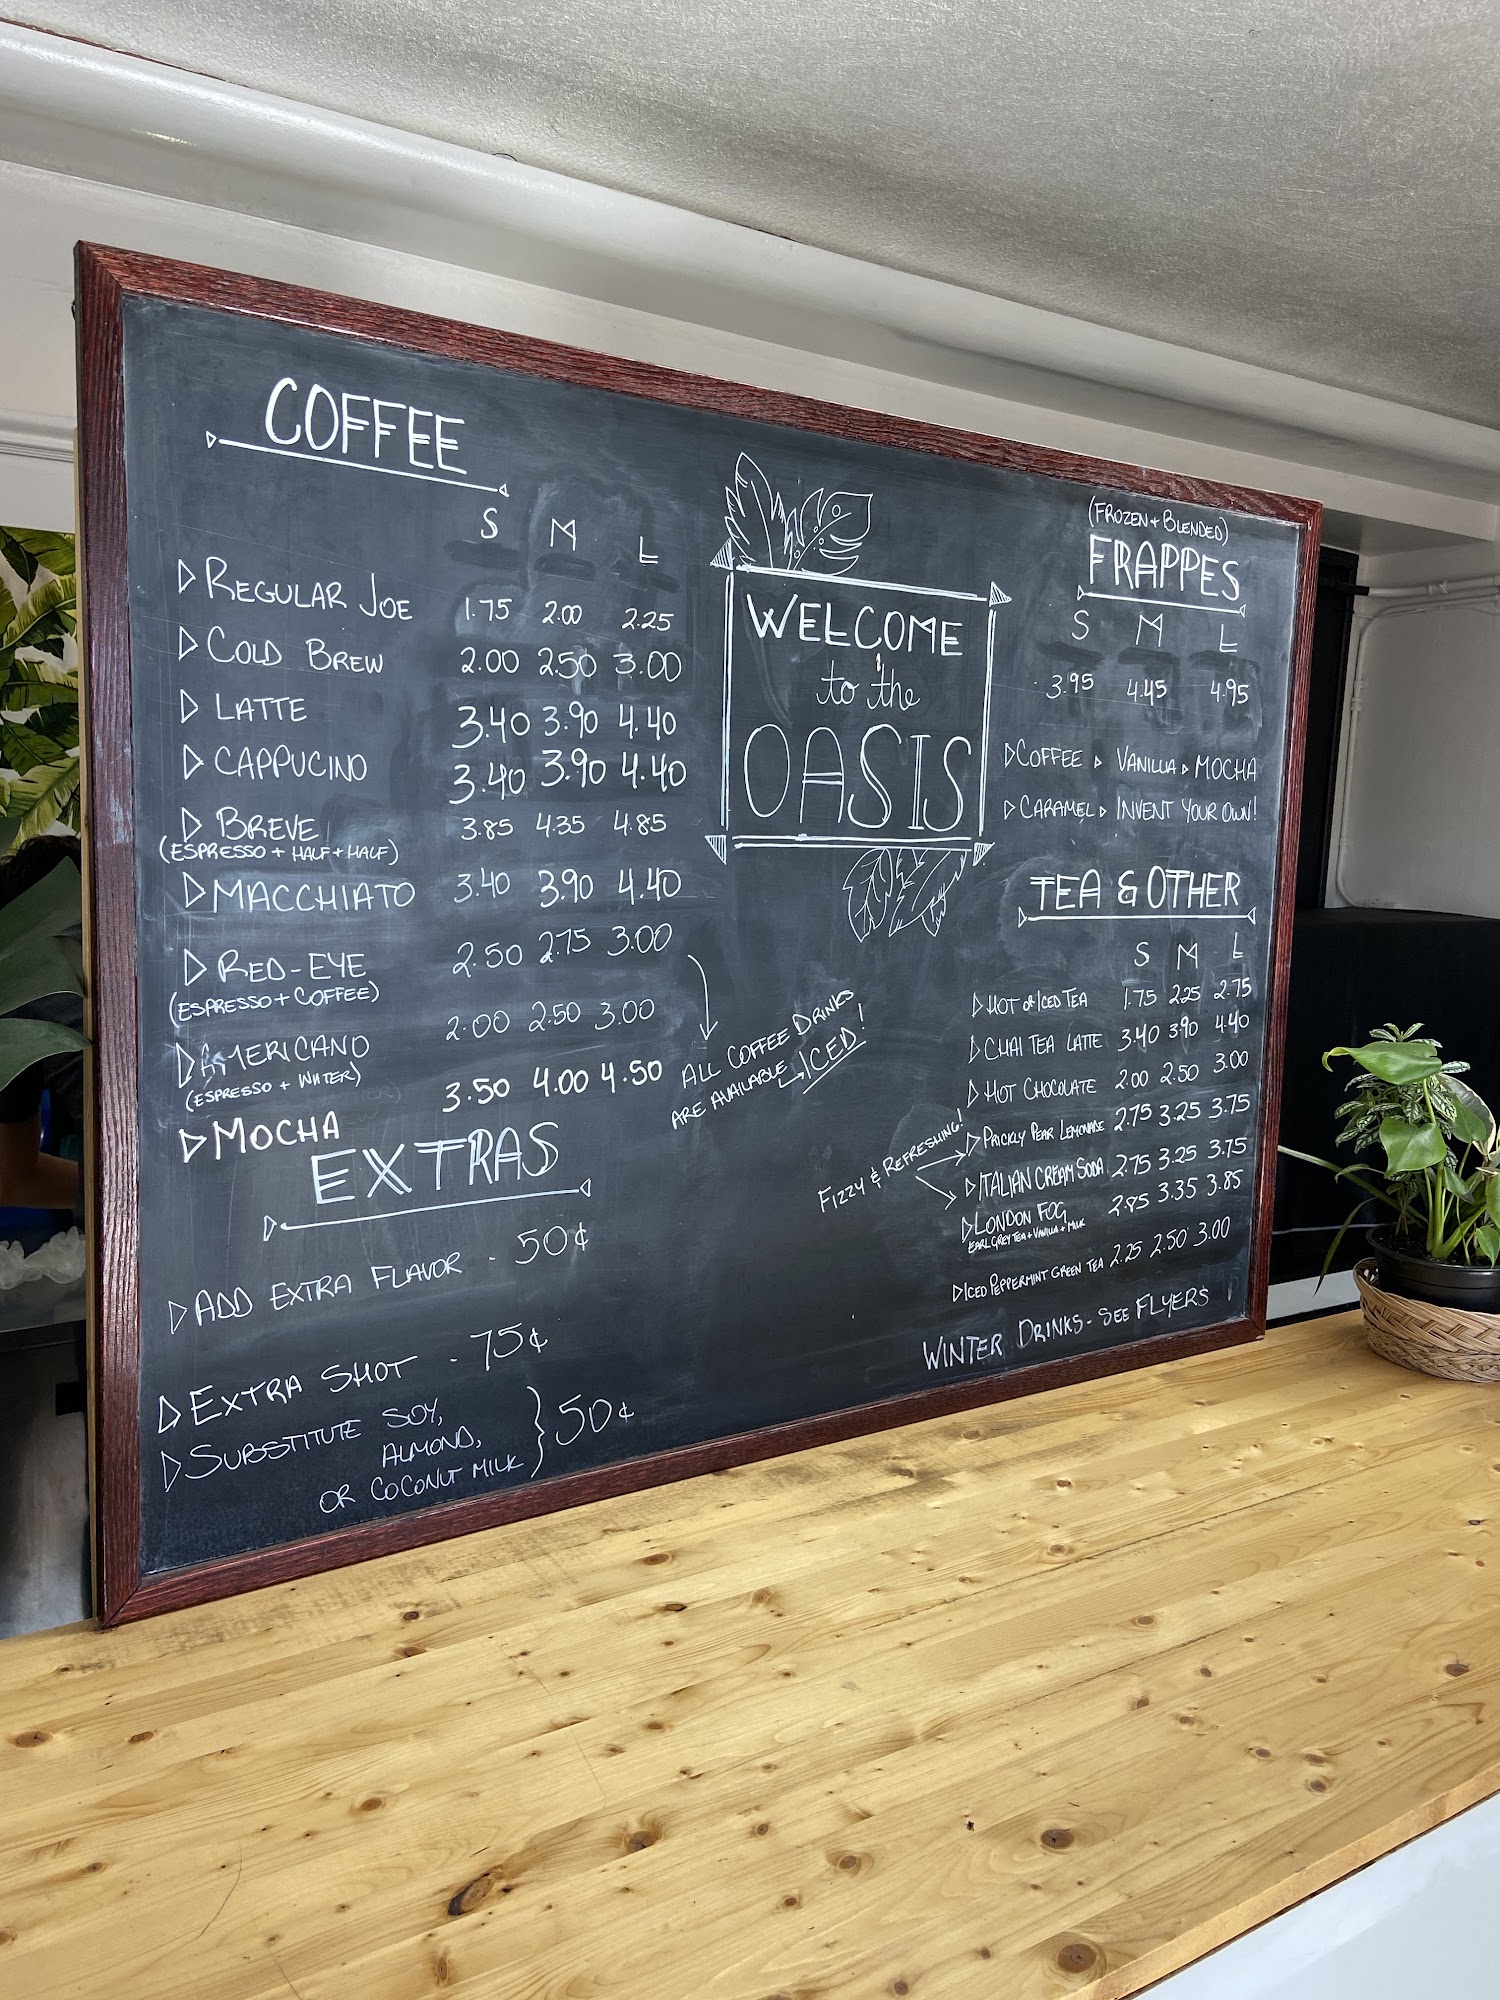 COFFEE
S M L
REGULAR JOE 1.75 2.00 2.25
COLD BREW 2.00 2.50 3.00
LATTE 3.40 3.90 4.40
CAPPUCINO 3.40 3.90 4.40
BREVE 3.85 4.35 4.85
(ESPRESSO + HALF + HALF)
MACCHIATO 3.40 3.90 4.40
RED-EYE 2.50 2.75 3.00
(ESPRESSO + COFFEE)
AMERICANO 2.00 2.50 3.00
(ESPRESSO + WATER)
MOCHA 3.50 4.00 4.50
ALL COFFEE DRINKS
ARE AVAILABLE ICED!
EXTRAS
ADD EXTRA FLAVOR - 50¢
EXTRA SHOT - 75¢
SUBSTITUTE SOY,
ALMOND,
OR COCONUT MILK } 50¢
WELCOME
to the
OASIS
(FROZEN + BLENDED)
FRAPPES
S M L
3.95 4.45 4.95
COFFEE VANILLA MOCHA
CARAMEL INVENT YOUR OWN!
TEA & OTHER
S M L
HOT or ICED TEA 1.75 2.25 2.75
CHAI TEA LATTE 3.40 3.90 4.40
HOT CHOCOLATE 2.00 2.50 3.00
FIZZY & REFRESHING!
PRICKLY PEAR LEMONADE 2.75 3.25 3.75
ITALIAN CREAM SODA 2.75 3.25 3.75
LONDON FOG 2.85 3.35 3.85
EARL GREY TEA + VANILLA + MILK
ICED PEPPERMINT GREEN TEA 2.25 2.50 3.00
WINTER DRINKS - SEE FLYERS